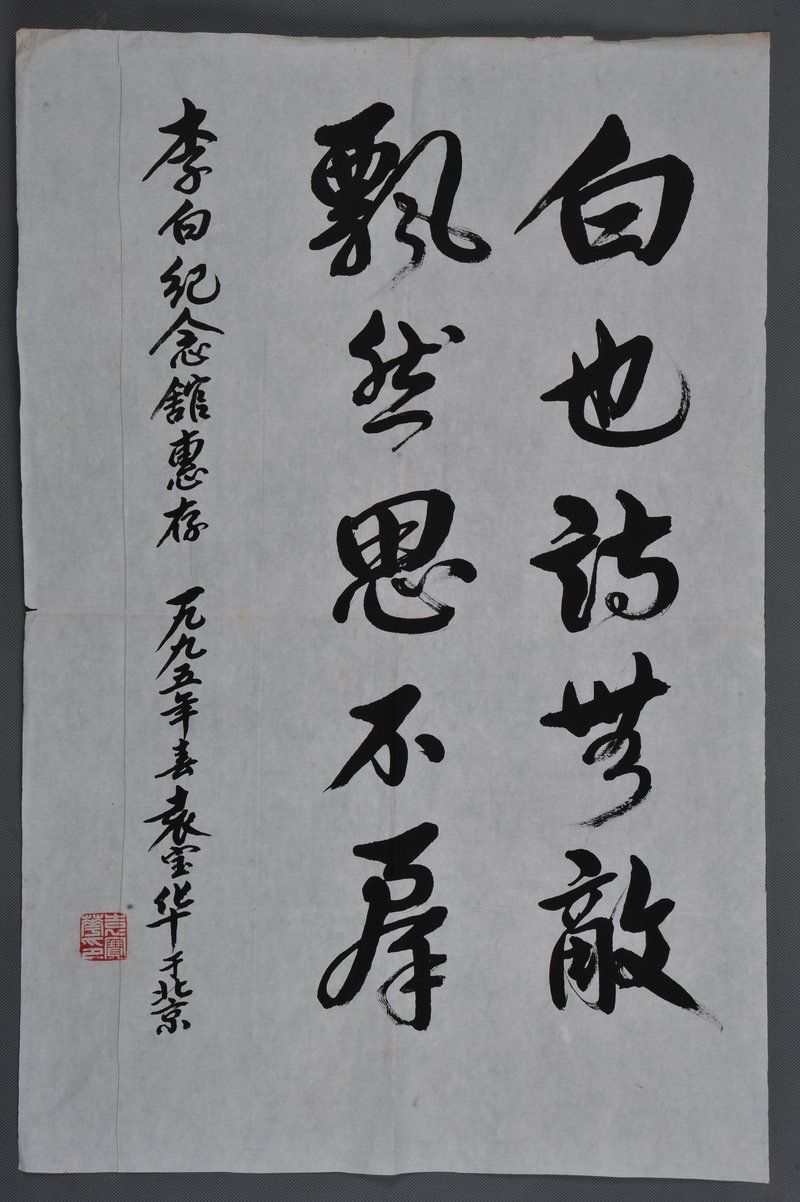 白也詩無敵
飄然思不羣
李白纪念舘惠存 一九九五年春袁宝华于北京
袁寶華印